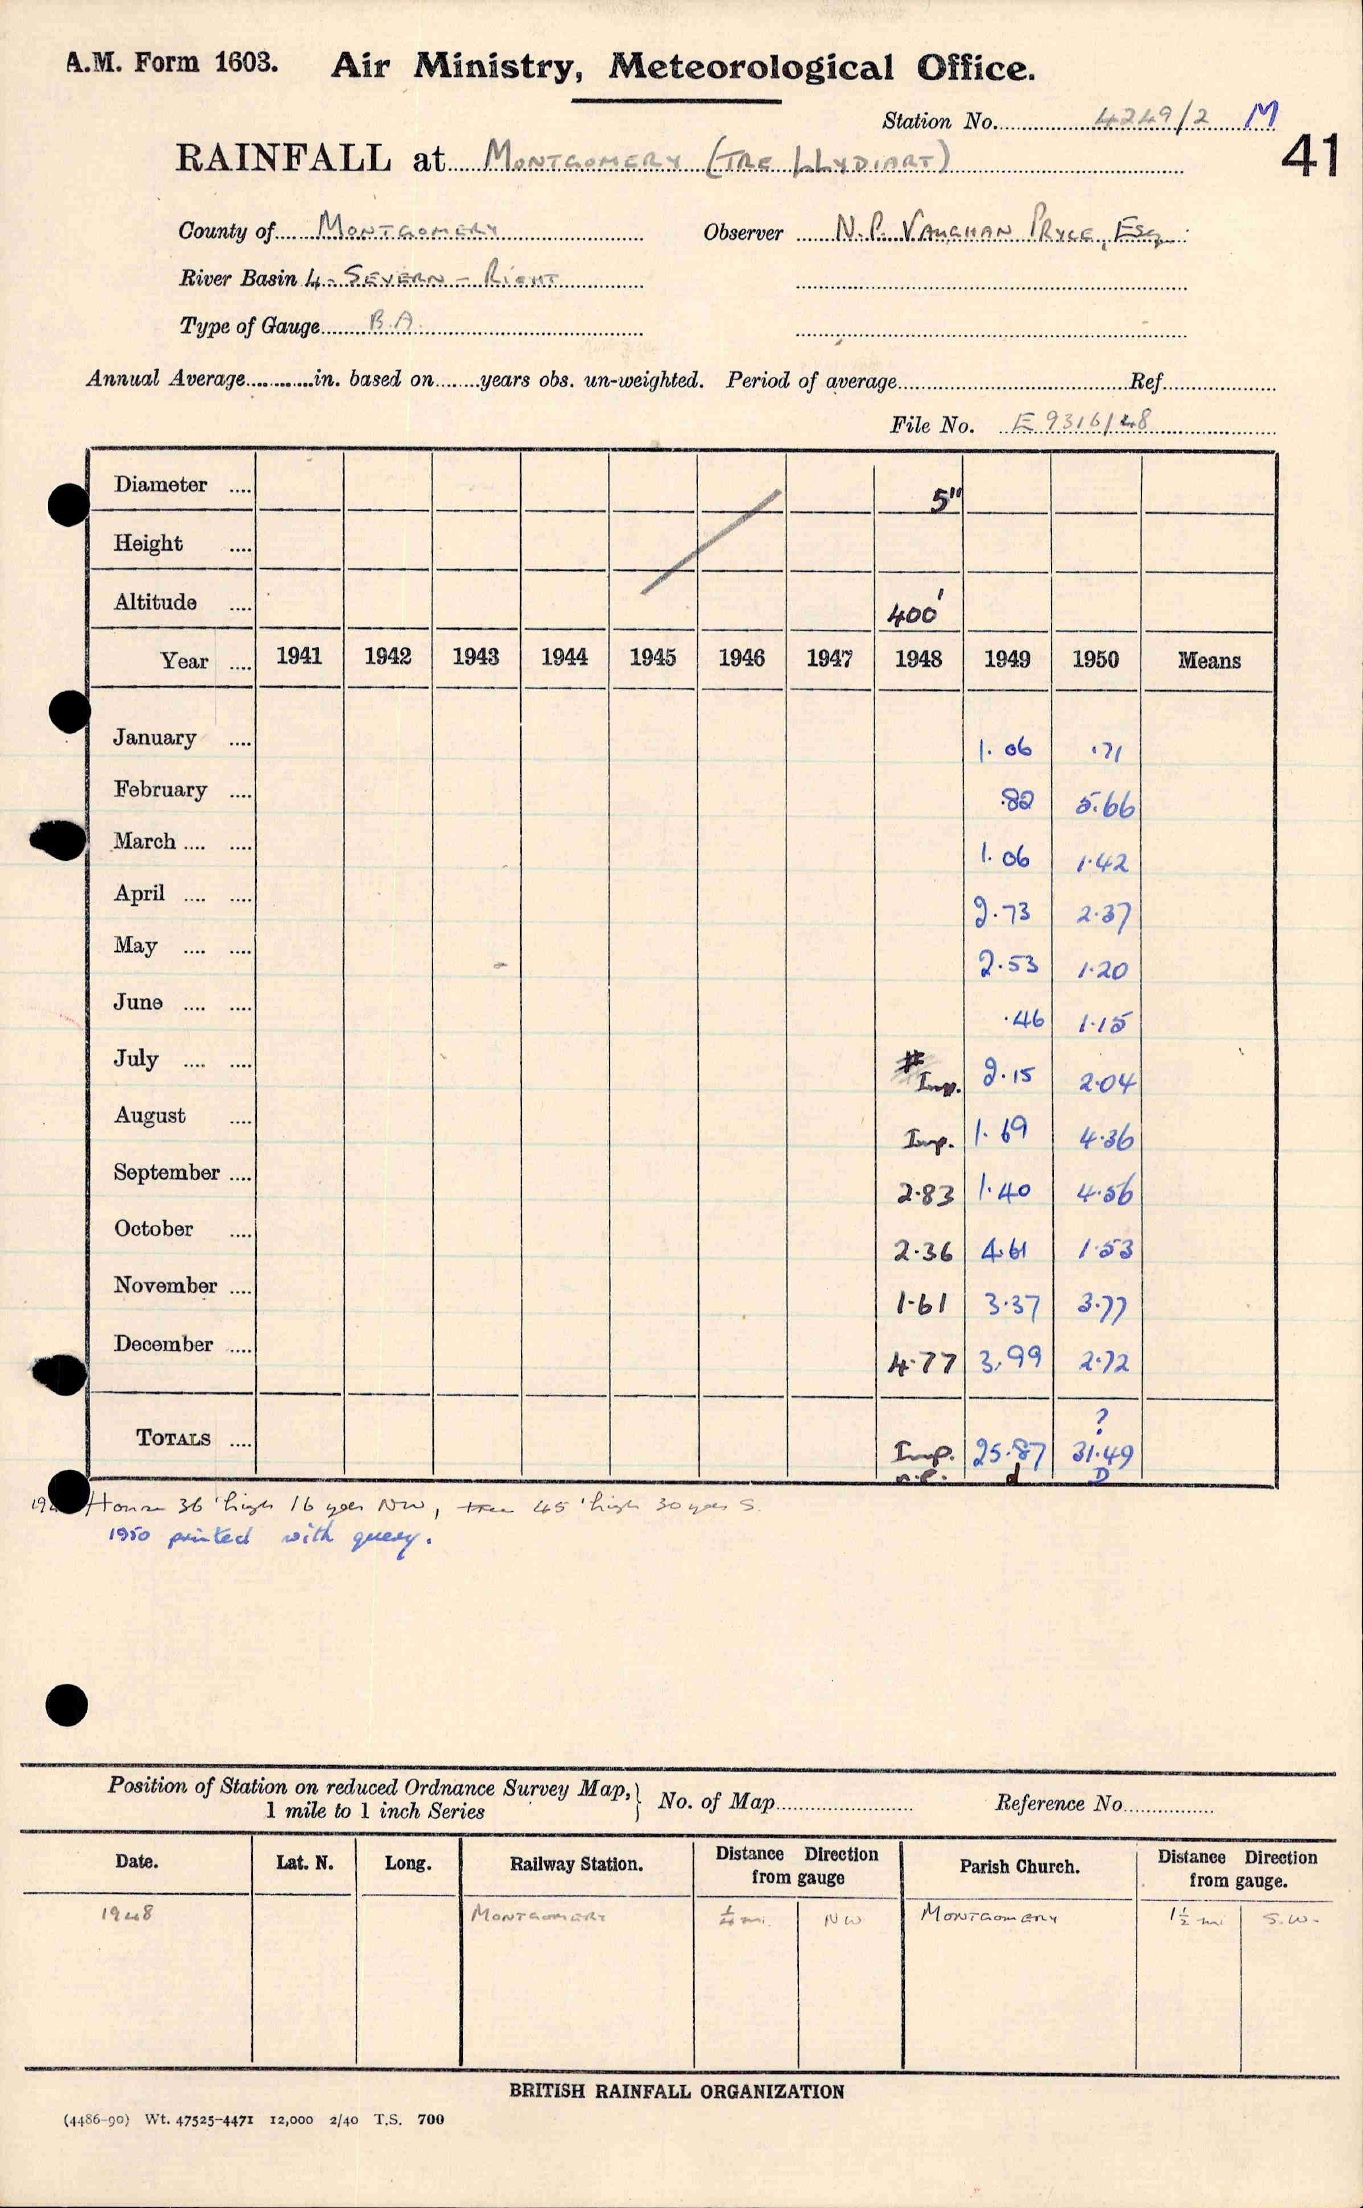 A.M. Form 1603. Air Ministry, Meteorological Office.
Station No. 4249/2 M
41
RAINFALL at MONTGOMERY (TRE LLYDIART)
County of MONTGOMERY Observer N.P. VAUGHAN PRYCE, Esq.
River Basin 4. SEVERN - RIGHT
Type of Gauge B.A.
Annual Average............in. based on........years obs. un-weighted. Period of average............Ref............
File No. E 9316/48
Diameter .... 5"
Height ....
Altitude .... 400'
Year .... 1941 1942 1943 1944 1945 1946 1947 1948 1949 1950 Means
January .... 1.06 .71
February .... .82 5.66
March .... .... 1.06 1.42
April .... .... 2.73 2.37
May .... .... 2.53 1.20
June .... .... .46 1.15
July .... .... # Imp. 2.15 2.04
August .... Imp. 1.69 4.36
September .... 2.83 1.40 4.56
October .... 2.36 4.61 1.53
November .... 1.61 3.37 3.77
December .... 4.77 3.99 2.72
?
TOTALS .... Imp. 25.87 31.49
n.p. d D
House 36' high 16 yds NW, tree 45' high 30 yds S.
1950 printed with query.
Position of Station on reduced Ordnance Survey Map, 1 mile to 1 inch Series } No. of Map............ Reference No............
Date. Lat. N. Long. Railway Station. Distance Direction from gauge Parish Church. Distance Direction from gauge.
1948 MONTGOMERY 1/4 mi. NW MONTGOMERY 1 1/2 mi S.W.
BRITISH RAINFALL ORGANIZATION
(4486-90) Wt. 47525-4471 12,000 2/40 T.S. 700